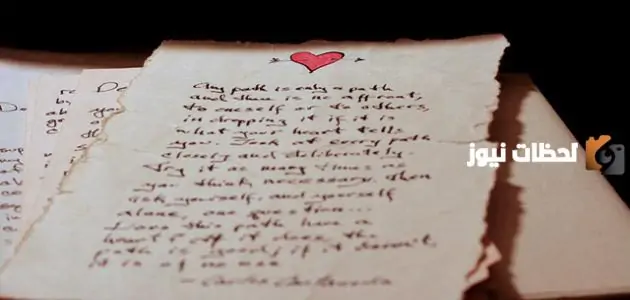 Any path is only a path
and there is no affront,
to oneself or to others,
in dropping it if it is
what your heart tells
you. Look at every path
closely and deliberately.
Try it as many times as
you think necessary. Then
ask yourself, and yourself
alone, one question...
Does this path have a
heart? If it does, the
path is good; if it doesn't,
it is of no use
— Carlos Castaneda
لحظات نيوز